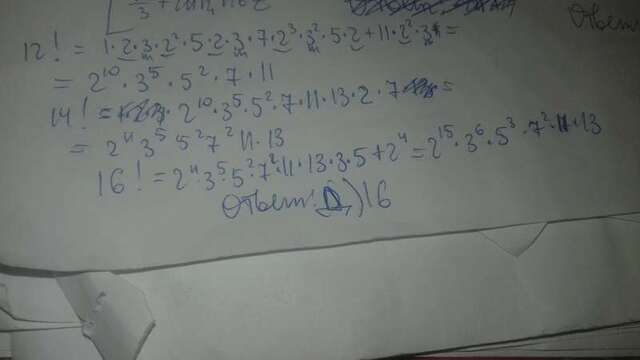 Ответ
12! = 1·2·3·2²·5·2·3·7·2³·3²·5·2+11·2²·3 =
= 2¹⁰·3⁵·5²·7·11
14! = 2¹⁰·3⁵·5²·7·11·13·2·7 =
= 2¹¹ 3⁵ 5² 7² 11·13
16! = 2¹¹·3⁵·5²·7²·11·13·3·5+2⁴ = 2¹⁵·3⁶·5³·7²·11·13
Ответ: D) 16